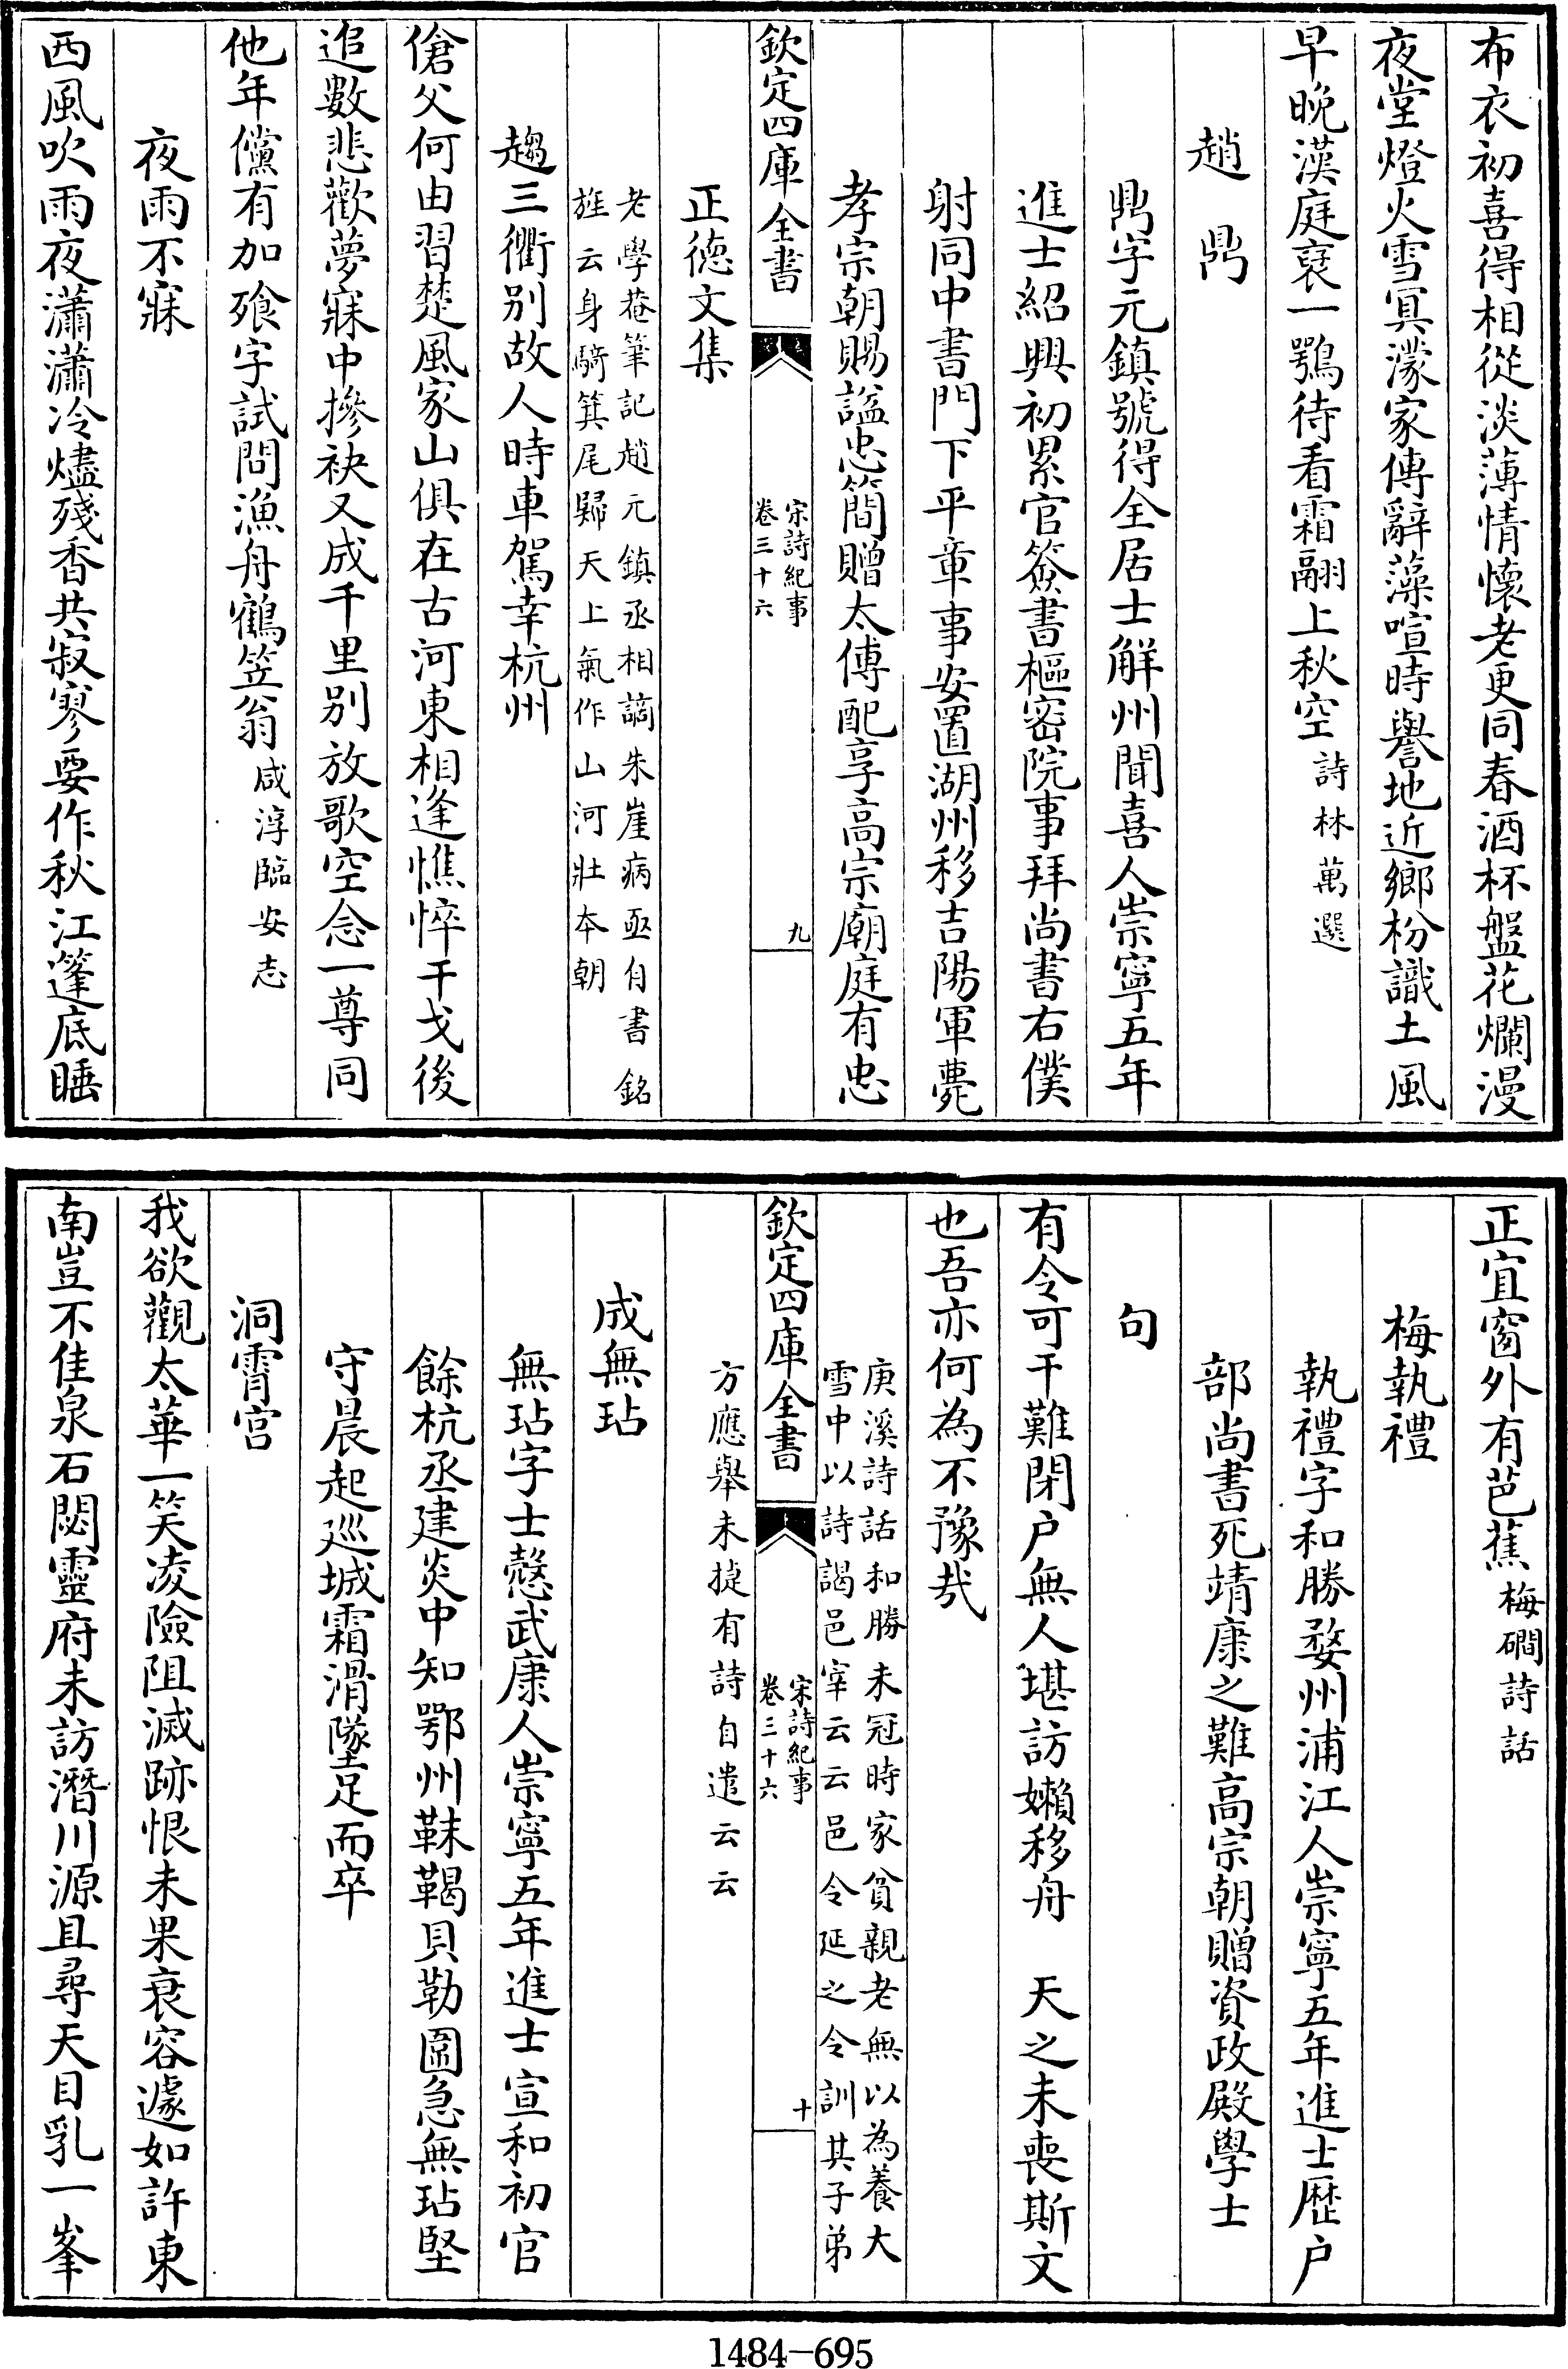 布衣初喜得相從淡薄情懷老更同春酒杯盤花爛漫
夜堂燈火雪冥濛家傳辭藻喧時譽地近鄉枌識土風
早晚漢庭裒一鶚待看霜翮上秋空詩林萬選
趙鼎
鼎字元鎮號得全居士解州聞喜人崇寧五年
進士紹興初累官簽書樞密院事拜尚書右僕
射同中書門下平章事安置湖州移吉陽軍薨
孝宗朝賜諡忠簡贈太傅配享高宗廟庭有忠
欽定四庫全書
宋詩紀事
卷三十六
九
正德文集
老學菴筆記趙元鎮丞相謫朱崖病亟自書銘
旌云身騎箕尾歸天上氣作山河壯本朝
趨三衢别故人時車駕幸杭州
傖父何由習楚風家山俱在古河東相逢憔悴干戈後
追數悲歡夢寐中摻袂又成千里别放歌空念一尊同
他年儻有加飱字試問漁舟鶴笠翁咸淳臨安志
夜雨不寐
西風吹雨夜瀟瀟冷燼殘香共寂寥要作秋江篷底睡
正宜窗外有芭蕉梅磵詩話
梅執禮
執禮字和勝婺州浦江人崇寧五年進士歷户
部尚書死靖康之難高宗朝贈資政殿學士
句
有令可干難閉户無人堪訪嬾移舟 天之未喪斯文
也吾亦何為不豫哉
庚溪詩話和勝未冠時家貧親老無以為養大
雪中以詩謁邑宰云云邑令延之令訓其子弟
欽定四庫全書
宋詩紀事
卷三十六
十
方應舉未㨗有詩自遣云云
成無玷
無玷字士慤武康人崇寧五年進士宣和初官
餘杭丞建炎中知鄂州靺鞨貝勒圍急無玷堅
守晨起巡城霜滑墜足而卒
洞霄宮
我欲觀太華一笑凌險阻滅跡恨未果衰容遽如許東
南豈不佳泉石閟靈府未訪潛川源且尋天目乳一峯
1484-695